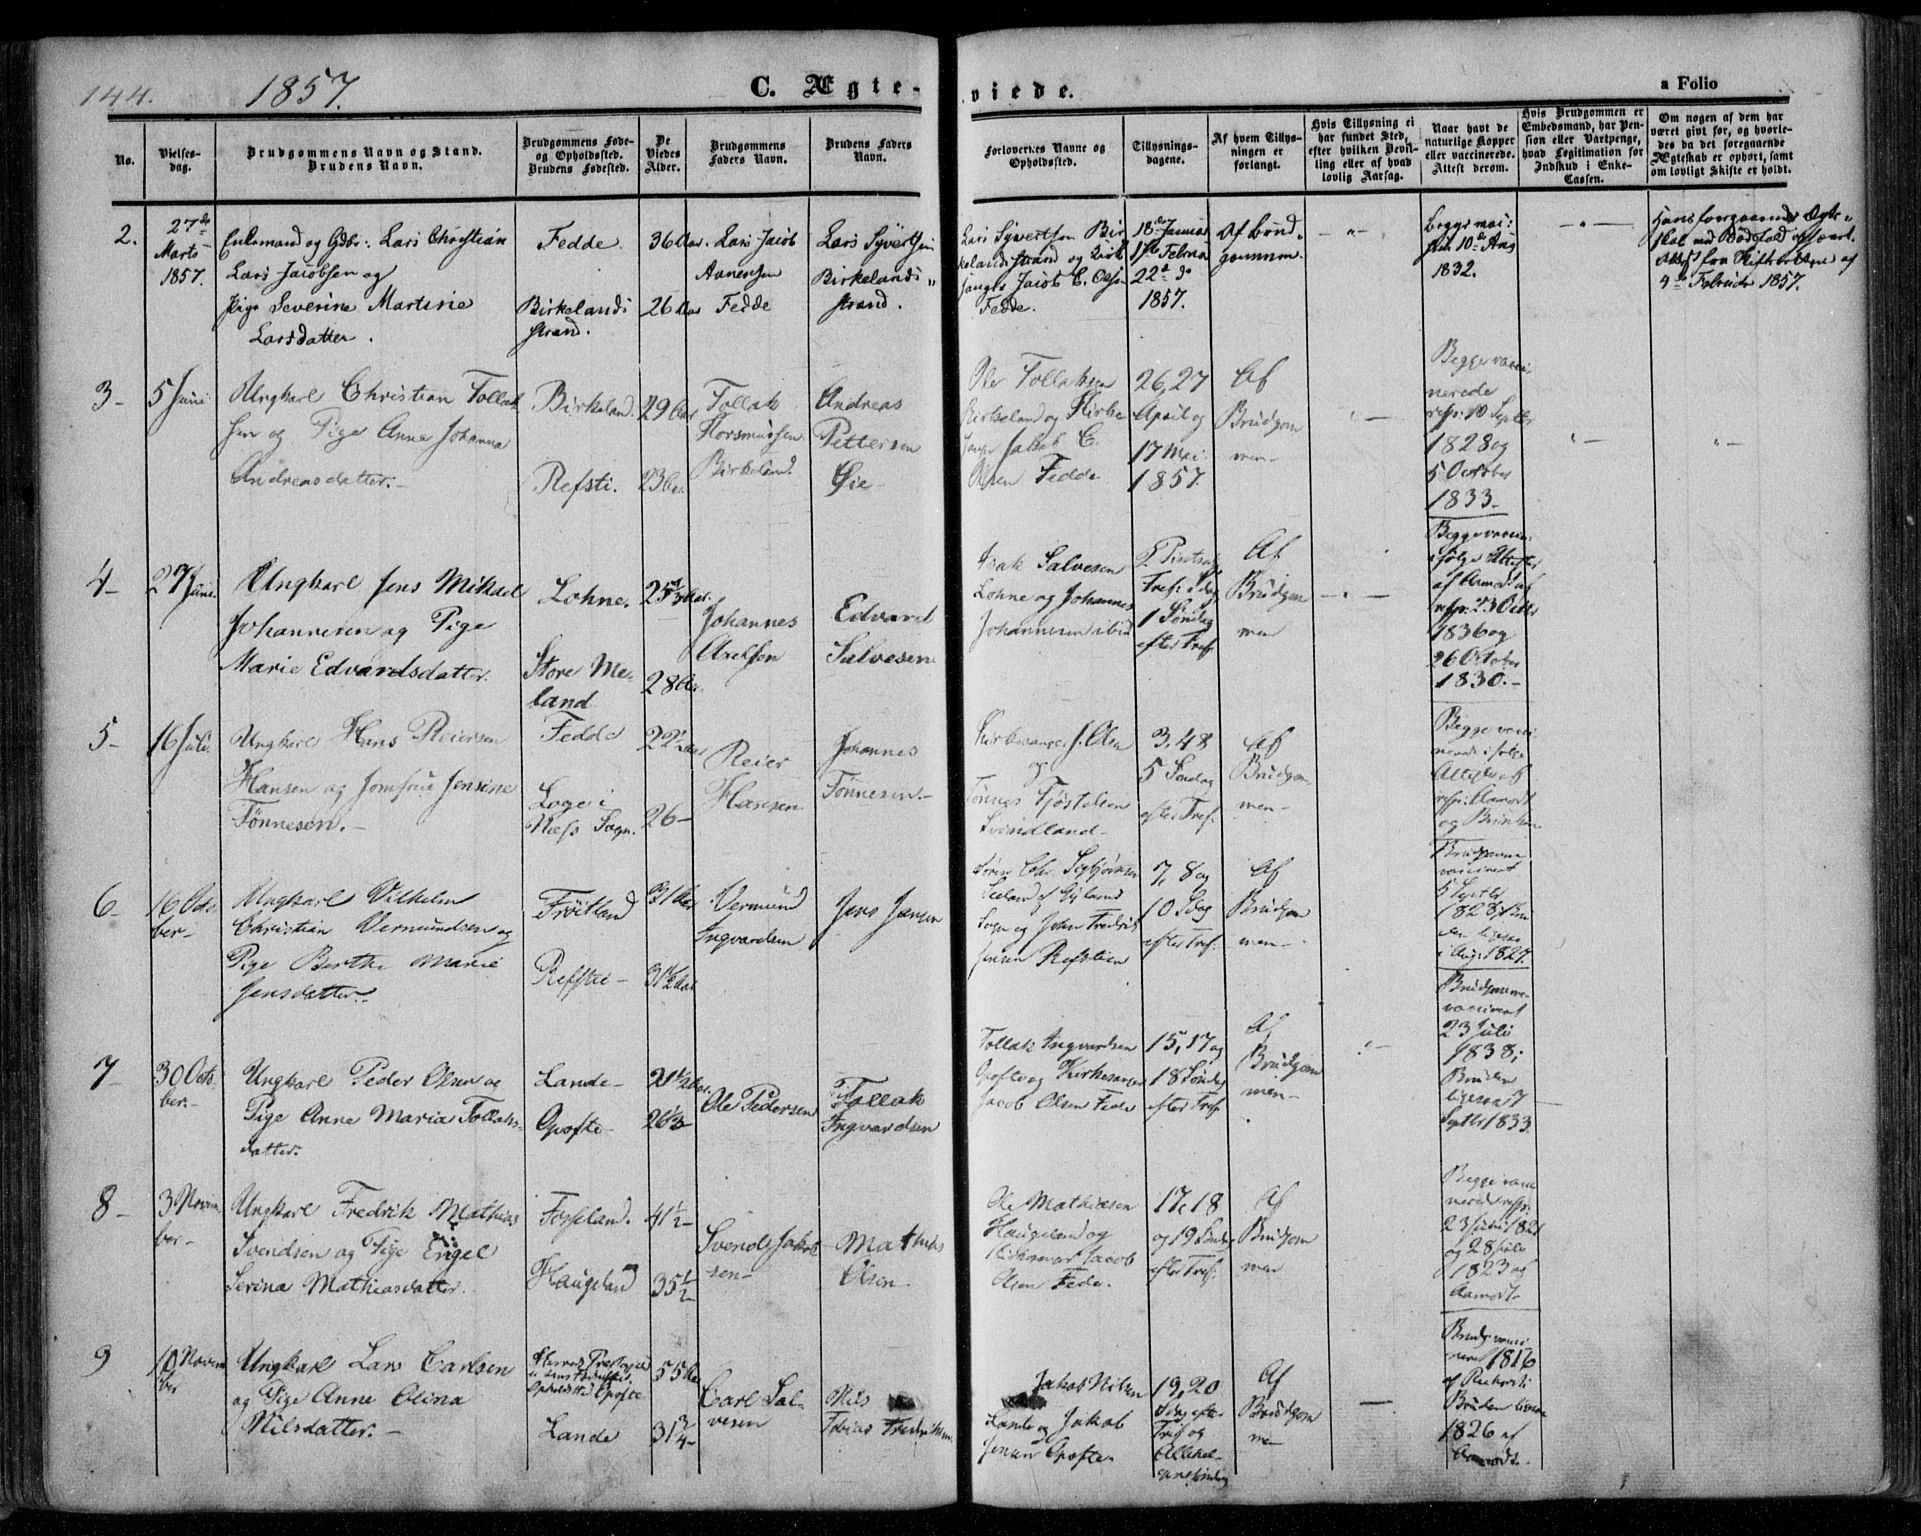 144. 1857. C. Ægte-viede. a Folio
No.
Vielses-dag.
Brudgommens Navn og Stand.
Brudens Navn.
Brudgommens Føde-
og Opholdssted.
Brudens Fødested.
De
Viedes
Alder.
Brudgommens
Faders Navn.
Brudens Faders
Navn.
Forlovernes Navne og
Opholdssted.
Tillysnings-
dagene.
Af hvem Tillys-
ningen er
forlangt.
Hvis Tillysning ei
har fundet Sted,
efter hvilken Bevil-
ling eller af hvad
lovlig Aarsag.
Naar havt de
naturlige Kopper
eller vaccinerede.
Attest derom.
Hvis Brudgommen er
Embedsmand, har Pen-
sion eller Vartpenge,
hvad Legitimation for
Indskud i Enke-
Cassen.
Om nogen af dem har
været gift før, og hvorle-
des da det foregaaende
Ægteskab er ophørt, samt
om lovligt Skifte er holdt.
2.
27de
Marts
1857.
Enkemand og Gdbr: Lars Christian
Lars Jacobsen og
Pige Severine Martinie
Larsdatter.
Fedde.
Birkelands
strand.
36 Aar.
26 Aar
Lars Jacob
Aanensen
Fedde
Lars Syvertsen
Birkelands
strand.
Lars Syvertsen Bir
kelandsstrand og Kirke
sanger Jacob C. Olsen
Fedde.
18de Januar
1ste Februar
22de do
1857.
Af Brud-
gommen.
Begge
den 10de Aug
1832.
Hans foregaaende Ægte-
skab ved Dødsfald
4de Februar 1857.
3
5 Juni
Ungkarl Christian Tollak
sen og Pige Anne Johanna
Andreasdatter.
Birkeland.
Refsti.
29 Aar
23 Aar
Tollak
Birkeland.
Andreas
Pettersen
Øie
Ole Tollaksen
Birkeland og Kirke
sanger Jakob C.
Olsen Fedde
26, 27
April og
17 Mai
1857.
Af
Brudgom
men
Begge vacci
nerede
10 Septbr
1828 og
5 October
1833.
4
27 Juni.
Ungkarl Jens Mikael
Johannesen og Pige
Marie Edvardsdatter.
Lohne.
Store Me-
land
28 Aar.
Johannes
Axelsen
Edvard
Salvesen
Isak Salvesen
Lohne og Johannes
Johannesen ibid
1 Søndag
efter Tref
Af
Brudgom
men
Begge vaccin:
ifølge Attester
af Aamodt
23 Octbr
1836 og
26 October
1830.
5
16 Juli
Ungkarl Hans Reiersen
Hansen og Jomfrue Jensine
Tønnesen.
Fedde
Loge i
Næss Sogn.
22½ Aar
26
Reier
Hansen
Johannes
Tønnesen.
Kirkesanger J. Olsen
og
Tønnes Tjøstelsen
Svindland
3, 4 &
5 Søndag
efter Tref.
Af
Brudgom
men
Begge vacci
nerede ifølge
Attester af
Aamodt
og
6
16 Octo
ber
Ungkarl Vilhelm
Christian Vermundsen og
Pige Berthe Marie
Jensdatter.
Frøitland
Refstie
31 Aar
31½ Aar
Vermund
Ingvardsen
Jens Jensen
Søren Chr. Sigbjørnsen
af Gyland
Sogn og John Fredrik
Jensen Refstien
7, 8 og
10 Sdag
efter Tref.
Af
Brudgom
men
Brudgommen
vaccineret
5 Septbr
1828
ligesaa
i Aug. 1827.
7
30 Octo
ber.
Ungkarl Peder Olsen og
Pige Anne Maria Tollaks-
datter.
Lande
Opofte
21½ Aar.
26½
Ole Pedersen
Tollak
Ingvardsen
Tollak Ingvardsen
Opofte og Kirkesanger
Jacob Olsen Fede
15, 17 og
18 Søndag
efter Tref
Af
Brudgom
men
Brudgommen
vaccineret
23 Juli
1838;
Bruden
ligesaa 7
Septbr 1833.
8
3 Novem
ber
Ungkarl Fredrik Mathias
Svendsen og Pige Engel
Serina Mathiasdatter.
Fosseland.
Haugeland
41½
35½
Svend Jakob
sen
Mathias
Olsen
Ole Mathiasen
Haugeland og
Kirkesanger Jacob
Olsen Fede.
17, 18
og 19 Søndag
efter Tref.
Af
Brudgom
men
Begge vacci
nerede
23 Juli 1821
og 28 Juli
1823 af
Aamodt.
9
10 Novem
ber
Ungkarl Lars Carlsen
og Pige Anne Elina
Nilsdatter.
Opholdssted Opofte
Lande
55 Aar
31¾
Carl Sal-
vesen
Nils
Tobias Fredriksen
Jakob Nilsen
Lande og Jakob
Jensen Opofte.
19, 20
Sdag efter
Tref og
Allehel-
gensøndag
Af
Brudgom
men
Brudg. vacci
neret 1816
af
Bruden ligesaa
1826 af
Aamodt.